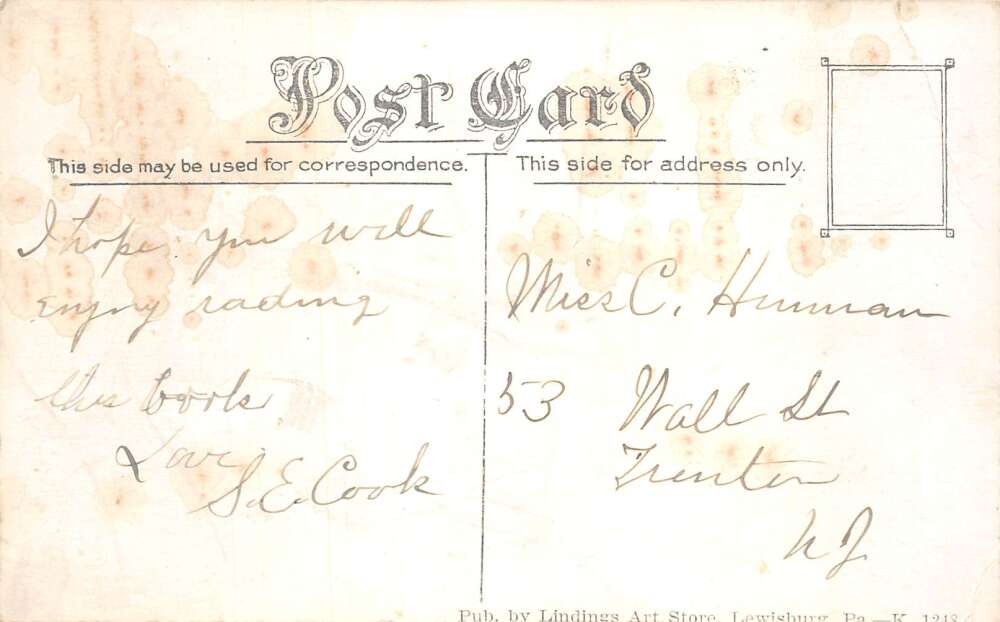 Post Card
This side may be used for correspondence.
This side for address only.
I hope you will
enjoy rading
this book
Love
S. E. Cook
Miss C. Hunman
53 Wall St
Trenton
NJ
Pub. by Lindings Art Store, Lewisburg, Pa.—K. 1248